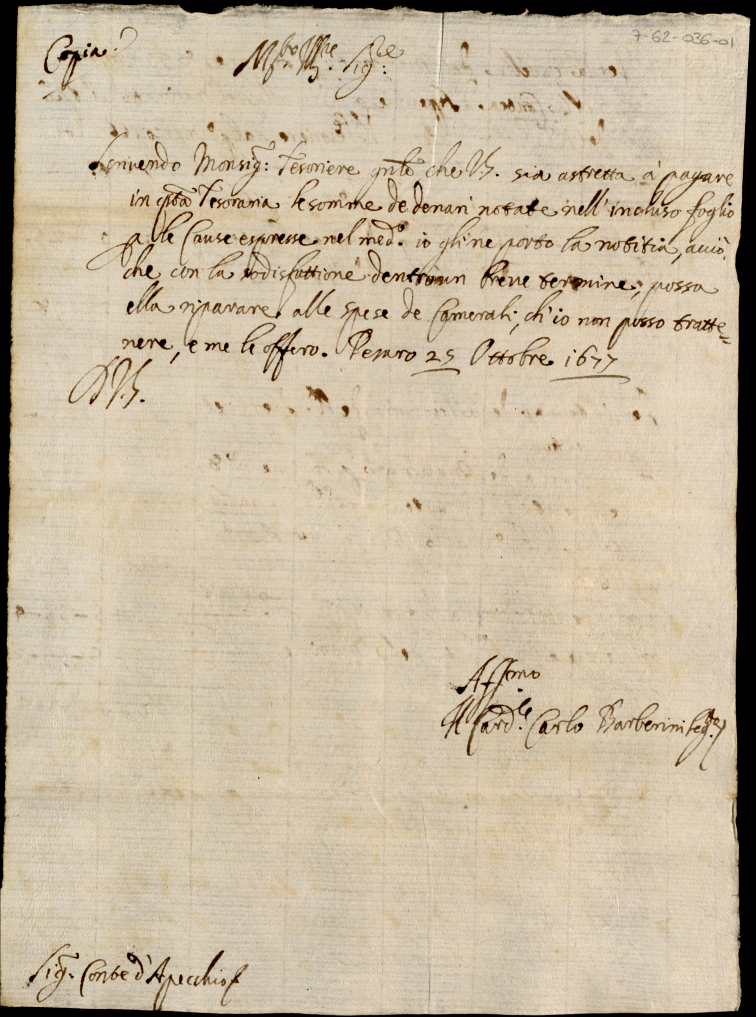 7-62-036-01
Copia
M.to Ill.re Sig.re
Scrivendo Monsig.r Tesoriere gnle che V.S. sia astretta à pagare
in q.sta Tesoraria le somme de denari notate nell' incluso foglio
a le Cause espresse nel med.o io gli ne porto la notitia, acciò
che con la sodisfattione dentro un breve termine, possa
ella riparare alle spese de Camerali, ch'io non posso tratte=
nere, e me le offero. Pesaro 25 Ottobre 1677
D V.S.
Aff.mo
Il Card.le Carlo Barberini Leg.to
Sig.r Conte d'Apecchio